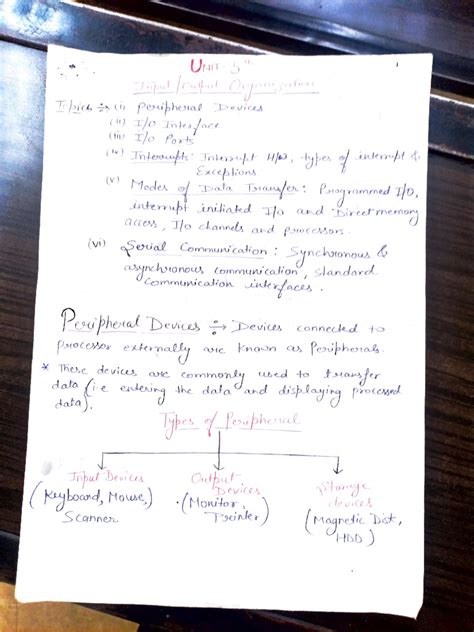 UNIT-5th
Input/Output Organization
Topics ÷→ (i) Peripheral Devices
(ii) I/O Interface
(iii) I/O Ports
(iv) Interrupts: Interrupt H/W, types of interrupt &
Exceptions
(v) Modes of Data Transfer: Programmed I/O,
interrupt initiated I/o and Direct memory
access, I/o channels and processors.
(vi) Serial Communication: Synchronous &
asynchronous communication, standard
communication interfaces.
Peripheral Devices ÷→ Devices connected to
processor externally are known as Peripherals.
* These devices are commonly used to transfer
data (i.e entering the data and displaying processed
data).
Types of Peripheral
Input Devices Output Devices Storage devices
(Keyboard, Mouse, Scanner (Monitor, Printer) (Magnetic Dist, HDD)